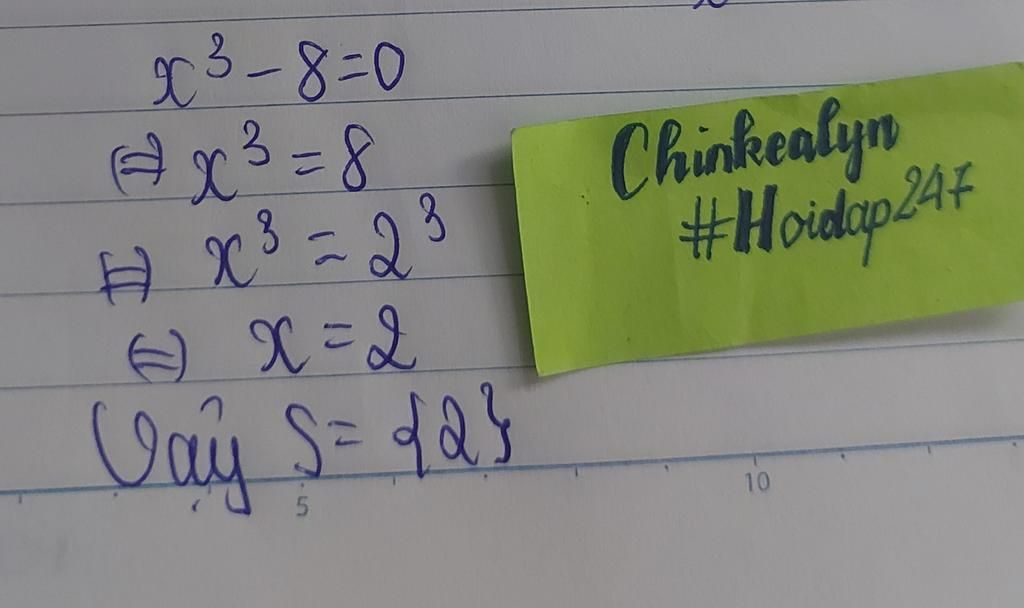 x³ - 8 = 0
⇔ x³ = 8
⇔ x³ = 2³
⇔ x = 2
Vậy S = {2}
Chinkealyn
#Hoidap247
5
10